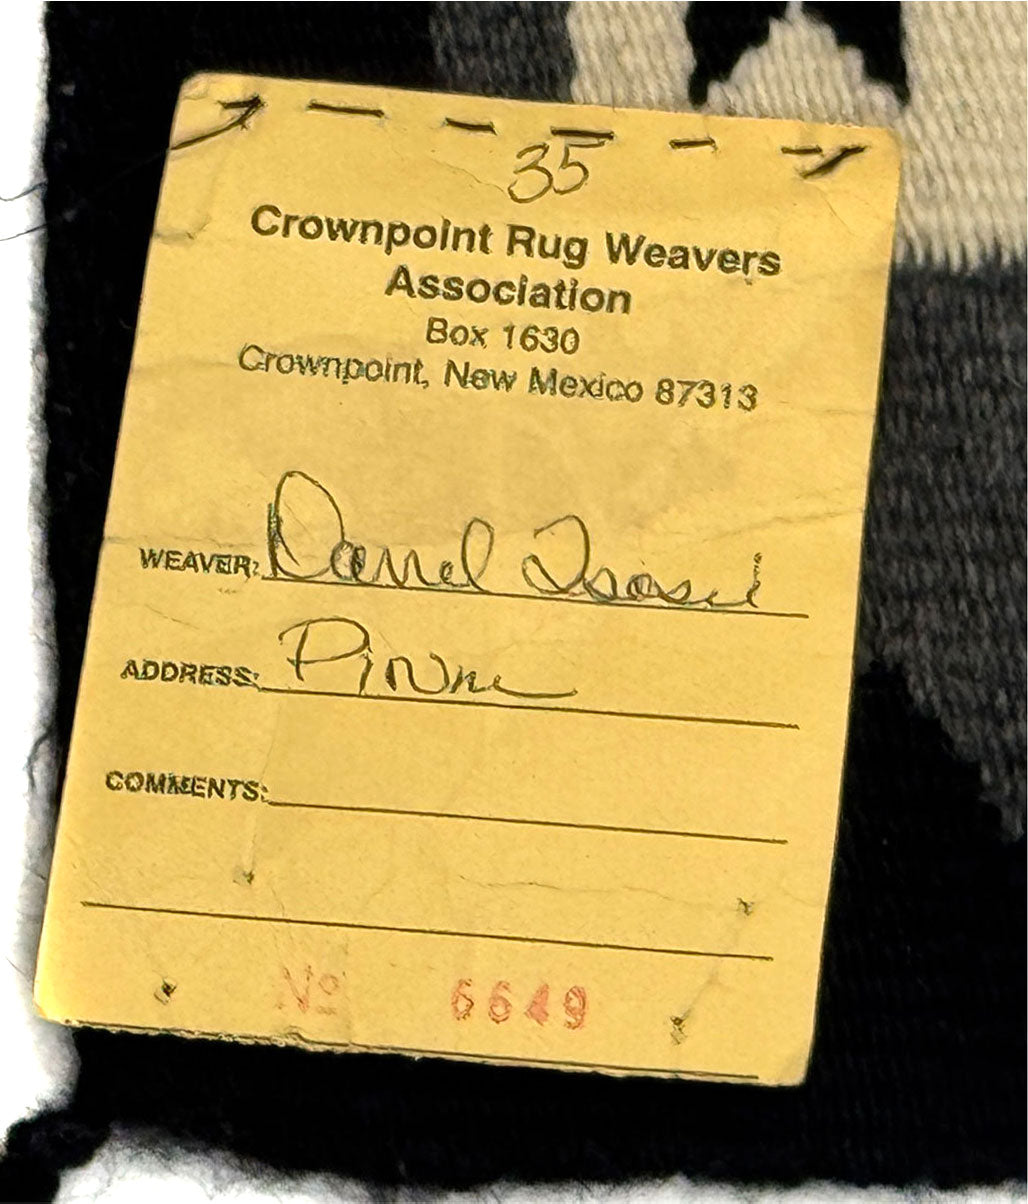 35
Crownpoint Rug Weavers
Association
Box 1630
Crownpoint, New Mexico 87313
WEAVER: Darrel Tsosie
ADDRESS: Pinon
COMMENTS:
No 6649